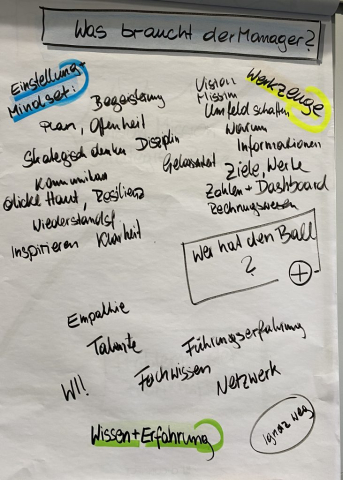 Was braucht der Manager?
Einstellung
Mindset:
Begeisterung
Plan, Offenheit
Strategisch denken Disziplin
Gelassenheit
Kommunikation
dicke Haut, Resilienz
Wiederstandsf
Inspirieren Klarheit
Werkzeuge
Vision
Mission
Umfeld schaffen
Warum
Informationen
Ziele, Werte
Zahlen + Dashboard
Rechnungswesen
Wer hat den Ball
?
Empathie
Talente
Führungserfahrung
Fachwissen
Netzwerk
Wissen + Erfahrung
Ignaz